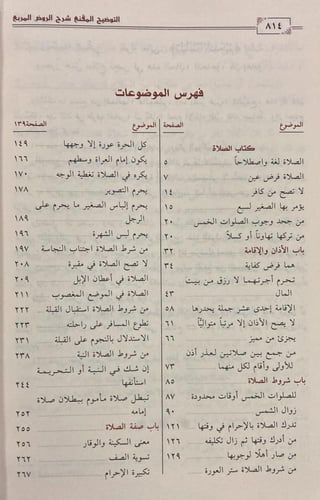 التوضيح المقنع شرح الروض المربع
٨١٤
فهرس الموضوعات
الموضوع الصفحة
كتاب الصلاة
الصلاة لغة واصطلاحاً ٥
الصلاة فرض عين ٧
لا تصح من كافر ١٤
يؤمر بها الصغير لسبع ١٥
من جحد وجوب الصلوات الخمس ٢٠
من تركها تهاوناً أو كسلاً ٢٠
باب الأذان والإقامة ٣٢
هما فرض كفاية ٣٤
تحرم أجرتهما لا رزق من بيت
المال ٤٣
الإقامة إحدى عشر جملة يحدرها ٥٨
لا يصح الأذان إلا مرتباً متوالياً ٦١
يجزئ من مميز ٦٦
من جمع بين صلاتين لعذر أذن
للأولى وأقام لكل منهما ٧٣
باب شروط الصلاة ٨٥
للصلوات الخمس أوقات محدودة ٨٧
زوال الشمس ٩٠
تدرك الصلاة بالإحرام في وقتها ١٢١
من أدرك وقتها ثم زال تكليفه ١٢٦
من صار أهلاً لوجوبها ١٢٩
من شروط الصلاة ستر العورة
الموضوع الصفحة ١٣٩
كل الحرة عورة إلا وجهها ١٤٩
يكون إمام العراة وسطهم ١٦٦
يكره في الصلاة تغطية الوجه ١٧٠
يحرم التصوير ١٧٨
يحرم إلباس الصغير ما يحرم على
الرجل ١٨٩
يحرم لبس الشهرة ١٩٦
من شرط الصلاة اجتناب النجاسة ١٩٧
لا تصح الصلاة في مقبرة ٢٠٨
الصلاة في أعطان الإبل ٢٠٩
الصلاة في الموضع المغصوب ٢١١
من شروط الصلاة استقبال القبلة ٢٢٢
تطوع المسافر على راحلته ٢٢٣
الاستدلال بالنجوم على القبلة ٢٣١
من شروط الصلاة النية ٢٣٨
إن شك في النية أو التحريمة
استأنفها ٢٤٤
تبطل صلاة مأموم ببطلان صلاة
إمامه ٢٥٢
باب صفة الصلاة ٢٥٥
معنى السكينة والوقار ٢٥٦
تسوية الصف ٢٦٢
تكبيرة الإحرام ٢٦٧